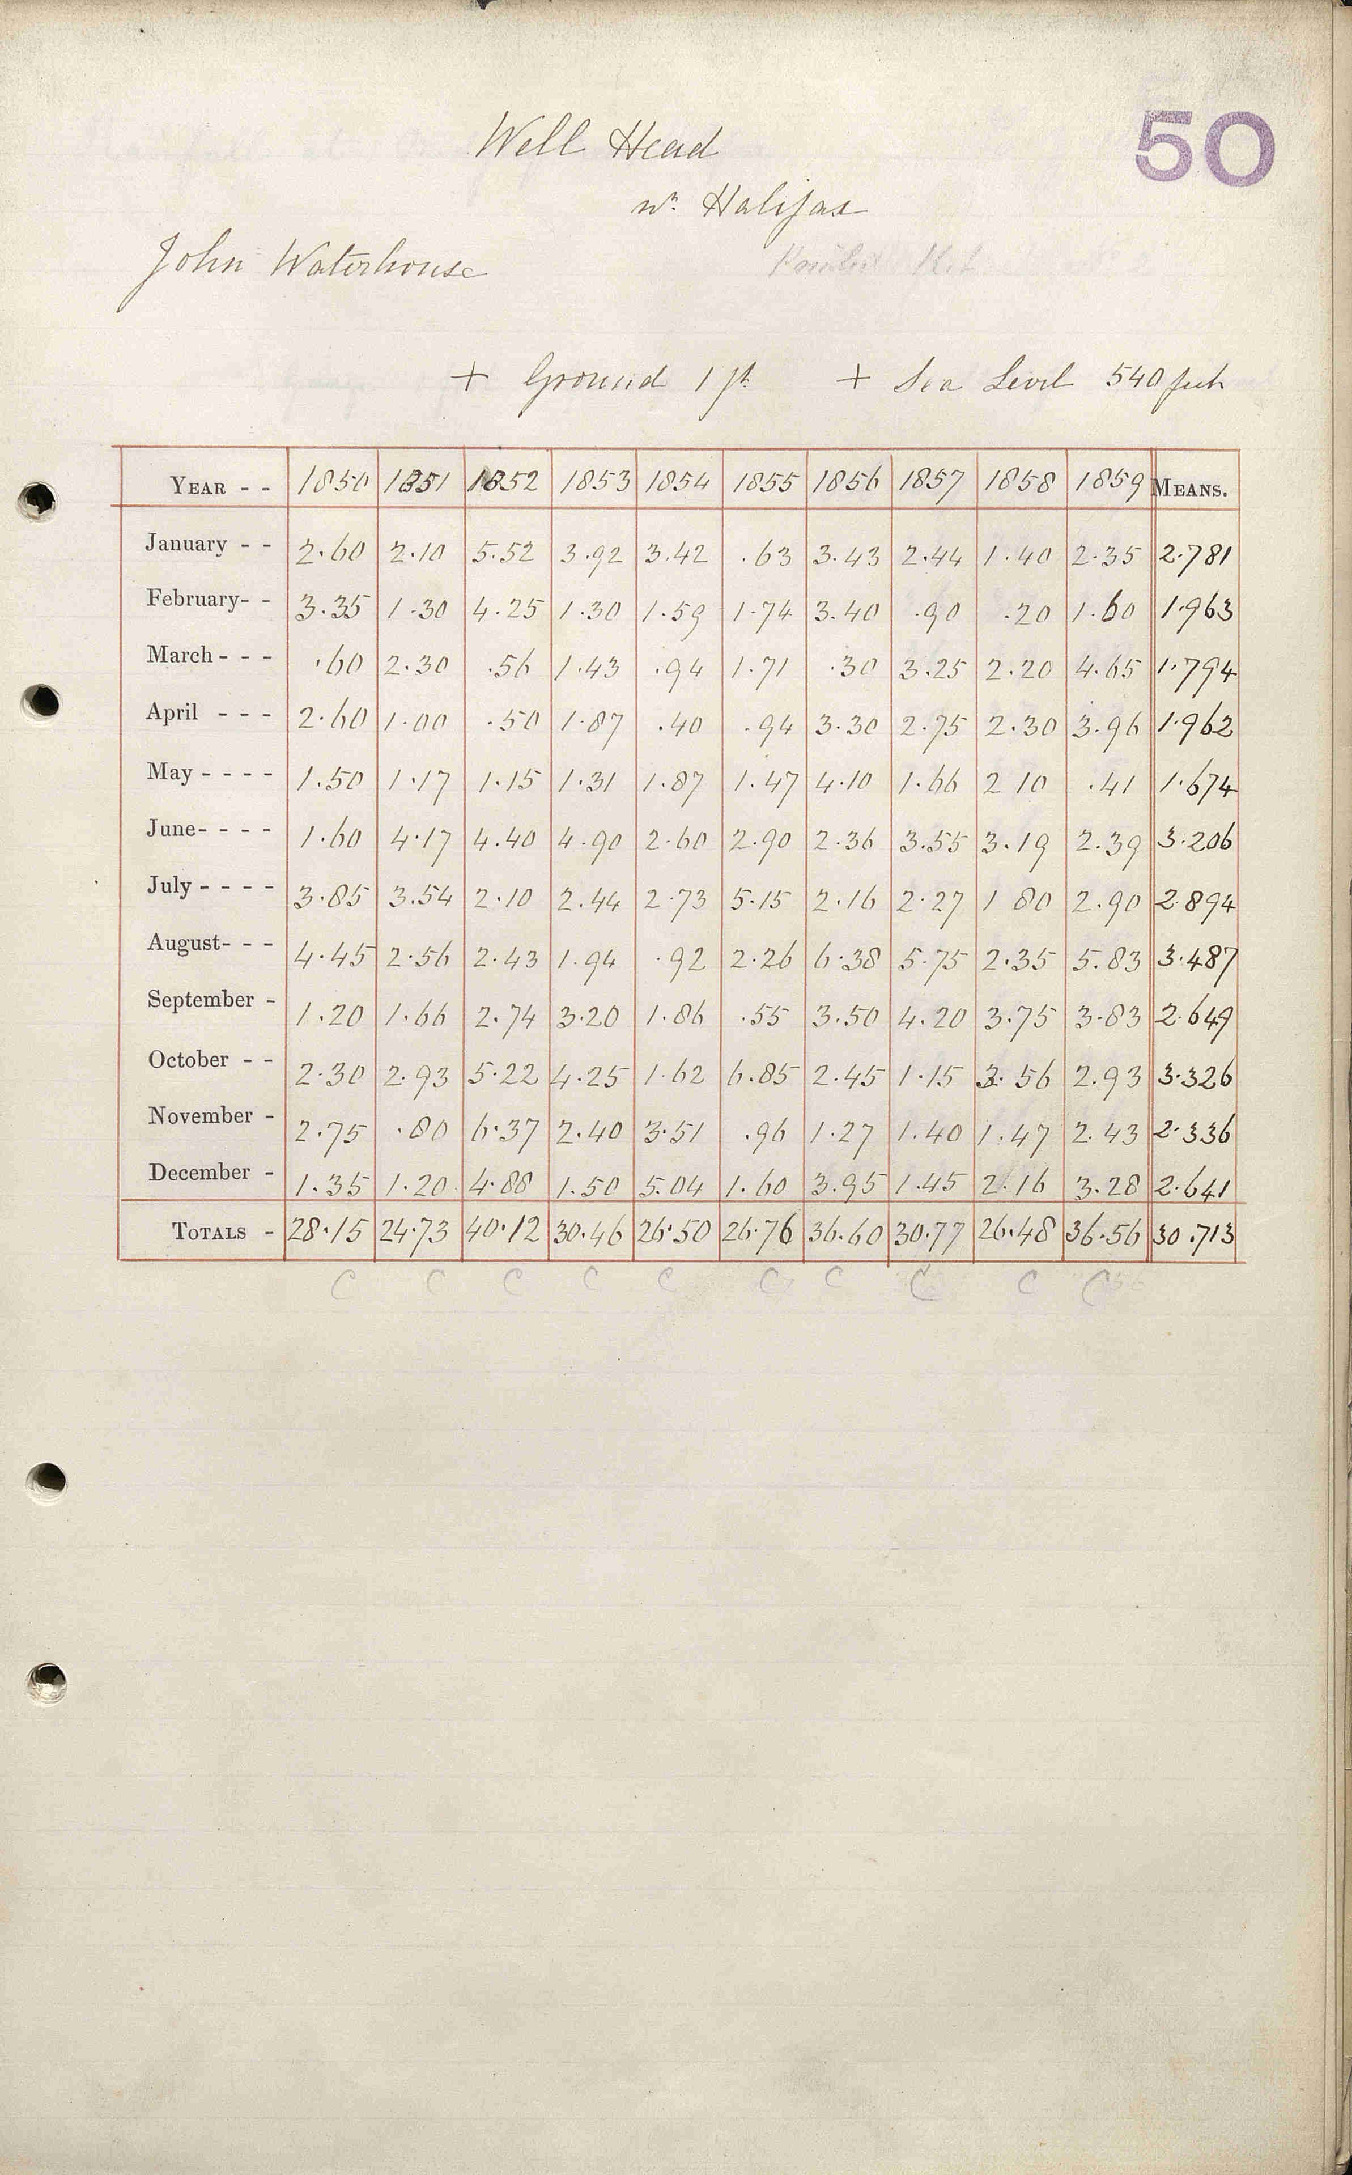 50
Well Head
nr. Halifax
John Waterhouse
+ Ground 1 ft + Sea Level 540 feet
YEAR - - 1850 1851 1852 1853 1854 1855 1856 1857 1858 1859 MEANS.
January - - 2.60 2.10 5.52 3.92 3.42 .63 3.43 2.44 1.40 2.35 2.781
February- - 3.35 1.30 4.25 1.30 1.59 1.74 3.40 .90 .20 1.60 1.963
March - - - .60 2.30 .56 1.43 .94 1.71 .30 3.25 2.20 4.65 1.794
April - - - 2.60 1.00 .50 1.87 .40 .94 3.30 2.75 2.30 3.96 1.962
May - - - - 1.50 1.17 1.15 1.31 1.87 1.47 4.10 1.66 2 10 .41 1.674
June- - - - 1.60 4.17 4.40 4.90 2.60 2.90 2.36 3.55 3.19 2.39 3.206
July - - - - 3.85 3.54 2.10 2.44 2.73 5.15 2.16 2.27 1 80 2.90 2.894
August- - - 4.45 2.56 2.43 1.94 .92 2.26 6.38 5.75 2.35 5.83 3.487
September - 1.20 1.66 2.74 3.20 1.86 .55 3.50 4.20 3.75 3.83 2.649
October - - 2.30 2.93 5.22 4.25 1.62 6.85 2.45 1.15 3.56 2.93 3.326
November - 2.75 .80 6.37 2.40 3.51 .96 1.27 1.40 1.47 2.43 2.336
December - 1.35 1.20 4.88 1.50 5.04 1.60 3.95 1.45 2.16 3.28 2.641
TOTALS - 28.15 24.73 40.12 30.46 26.50 26.76 36.60 30.77 26.48 36.56 30.713
C C C C C C C C C C